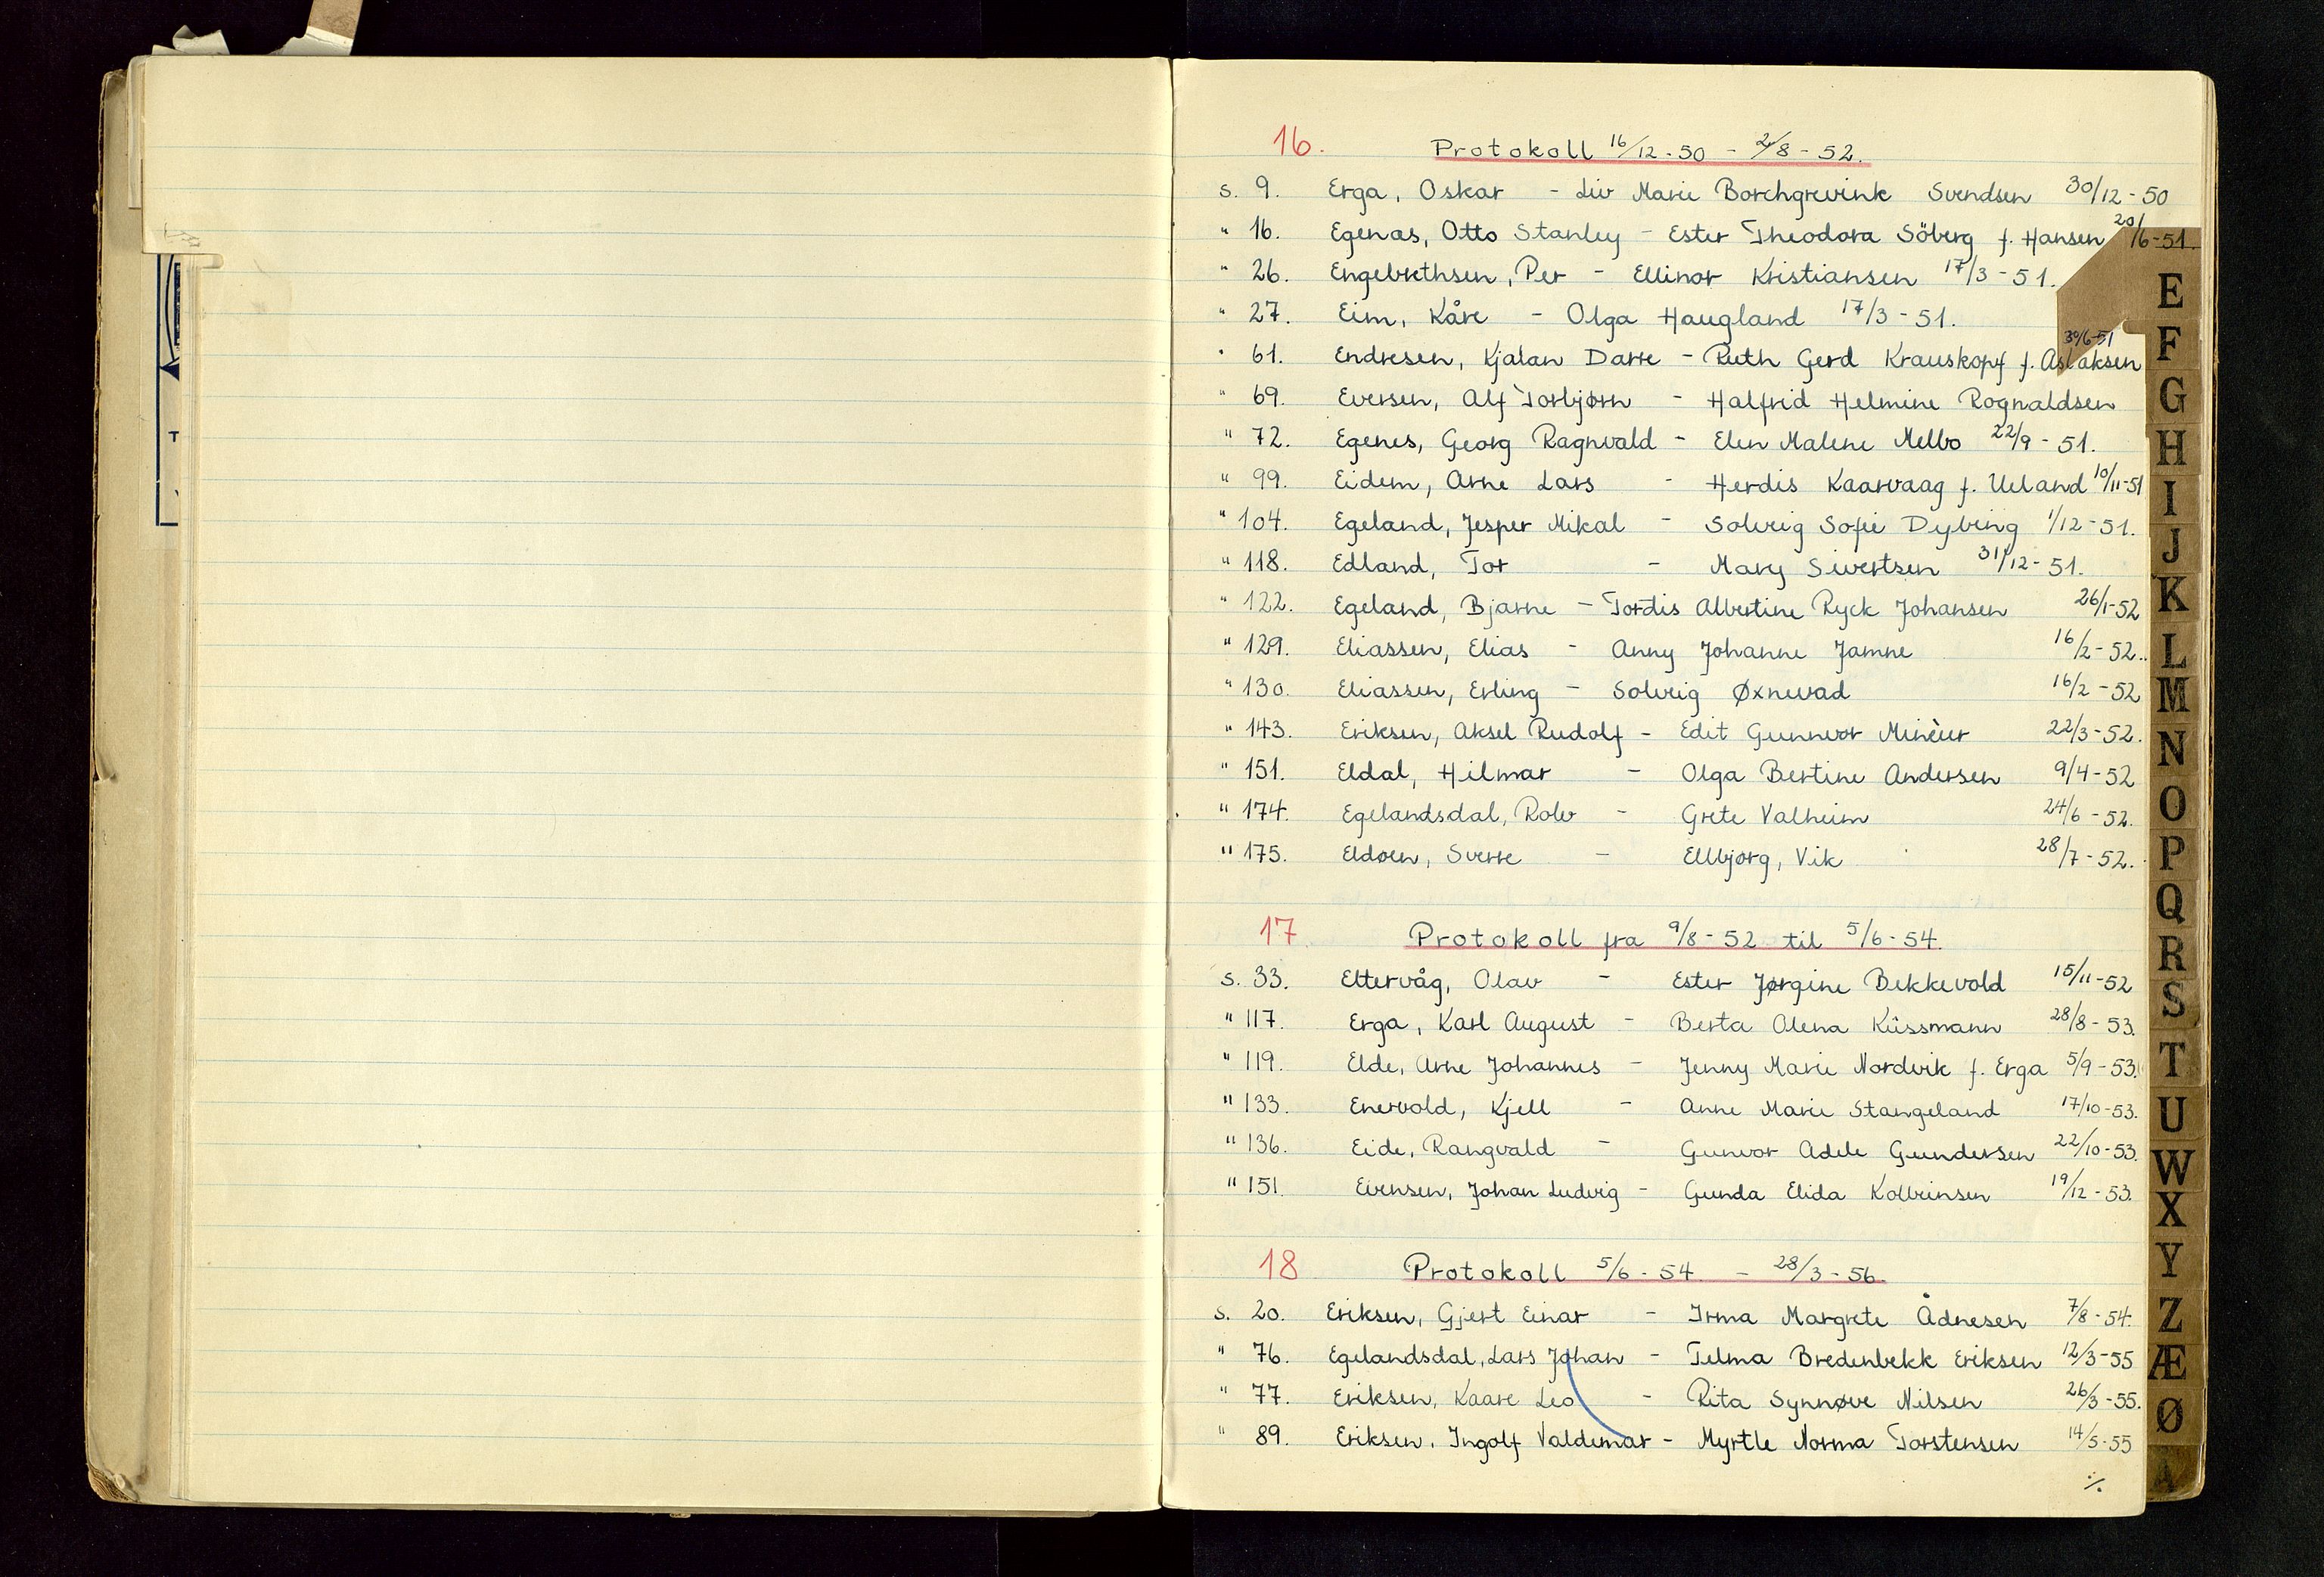 16. Protokoll 16/12-50 - 2/8-52.
s. 9. Erga, Oskar - Liv Marie Borchgrevink Svendsen 30/12-50
" 16. Egenæs, Otto Stanley - Ester Theodora Söberg f. Hansen 20/6-51.
" 26. Engebrethsen, Per - Ellinor Kristiansen 17/3-51.
" 27. Eim, Kåre - Olga Haugland 17/3-51.
" 61. Endresen, Kjalan Darre - Ruth Gerd Krauskopf f. Aslaksen 30/6-51
" 69. Eversen, Alf Torbjørn - Halfrid Helmine Rognaldsen
" 72. Egenes, Georg Ragnvald - Elen Malene Melbo 22/9-51.
" 99. Eidem, Arne Lars - Herdis Kaarvaag f. Ueland 10/11-51
" 104. Egeland, Jesper Mikal - Solveig Sofie Dybing 1/12-51.
" 118. Edland, Tor - Mary Sivertsen 31/12-51.
" 122. Egeland, Bjarne - Tordis Albertine Ryck Johansen 26/1-52
" 129. Eliassen, Elias - Anny Johanne Jamne 16/2-52.
" 130. Eliassen, Erling - Solveig Øxnevad 16/2-52
" 143. Eriksen, Aksel Rudolf - Edit Gunnvor 22/3-52.
" 151. Eldal, Hilmar - Olga Bertine Andersen 9/4-52
" 174. Egelandsdal, Rolv - Grete Valheim 24/6-52.
" 175. Eldøen, Sverre - Ellbjørg, Vik 28/7-52.
17 Protokoll fra 9/8-52 til 5/6-54.
s. 33. Ettervåg, Olav - Ester Jørgine Bekkevold 15/11-52
" 117. Erga, Karl August - Berta Alena Küssmann 28/8-53.
" 119. Elde, Arne Johannes - Jenny Marie Nordvik f. Erga 5/9-53.
" 133. Enervold, Kjell - Anne Marie Stangeland 17/10-53.
" 136. Eide, Rangvald - Gunvor Adele Gundersen 22/10-53.
" 151. Evensen, Johan Ludvig - Gunda Elida Kolbeinsen 19/12-53.
18 Protokoll 5/6-54 - 28/3-56.
s. 20. Eriksen, Gjert Einar - Irma Margrete Ådnesen 7/8-54.
" 76. Egelandsdal, Lars Johan - Telma Bredenbekk Eriksen 12/3-55
" 77. Eriksen, Kaare Leo - Rita Synnøve Nilsen 26/3-55.
" 89. Eriksen, Ingolf Valdemar - Myrtle Norma Torstensen 14/5-55
./.
E
F
G
H
I
J
K
L
M
N
O
P
Q
R
S
T
U
W
X
Y
Z
Æ
Ø